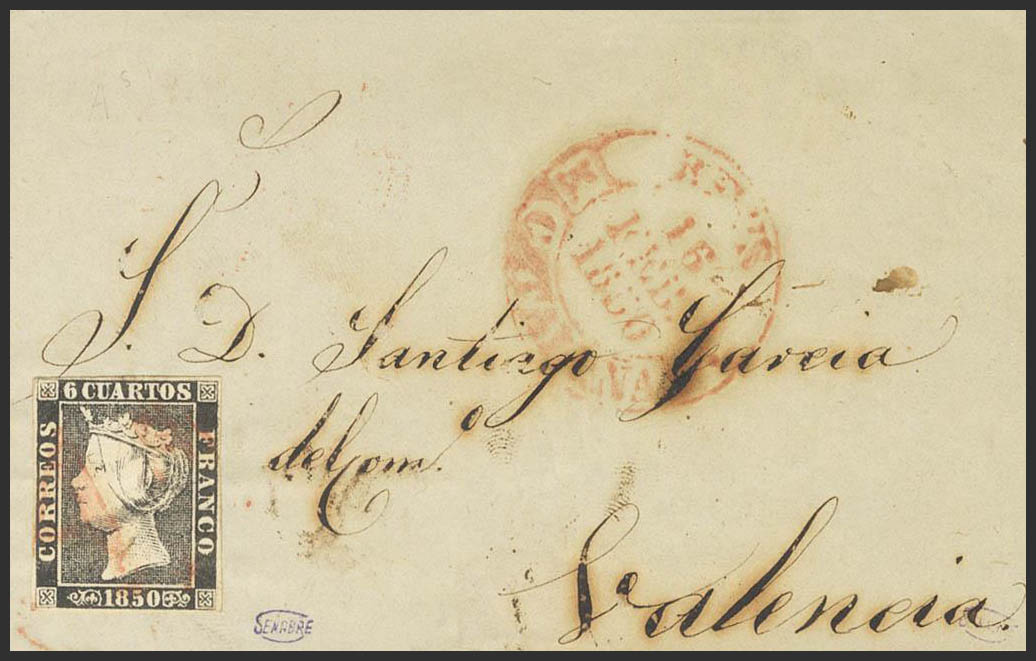 REUS
16
1850
CATALUÑA
S. D. Santiago Garcia
del Com.o
Valencia.
6 CUARTOS
CORREOS
FRANCO
1850
SENABRE